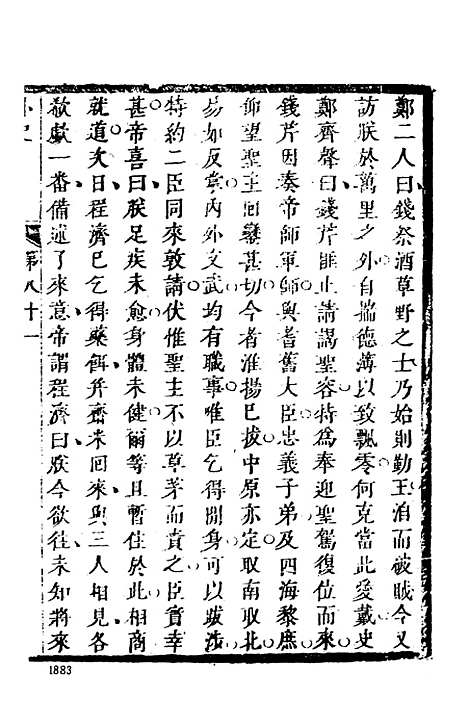 鄭二人曰錢祭酒草野之士乃始則勤王洎而破賊今又
訪朕於萬里之外自揣德薄以致飄零何克當此愛戴史
鄭齊聲曰錢芹匪止請謁聖容特爲奉迎聖駕復位而來
錢芹因奏帝師軍師與耆舊大臣忠義子弟及四海黎庶
仰望聖主回鑾甚切今者淮揚已拔中原亦定取南取北
易如反掌內外文武均有職事唯臣乞得閒身可以跋涉
特約二臣同來敦請伏惟聖主不以草茅而責之臣實幸
甚帝喜曰朕足疾未愈身體未健爾等且暫住於此相商
就道次日程濟已乞得藥餌并齋米回來與三人相見各
敘獻一番備述了來意帝謂程濟曰朕今欲往未知將來
第八十一
1883